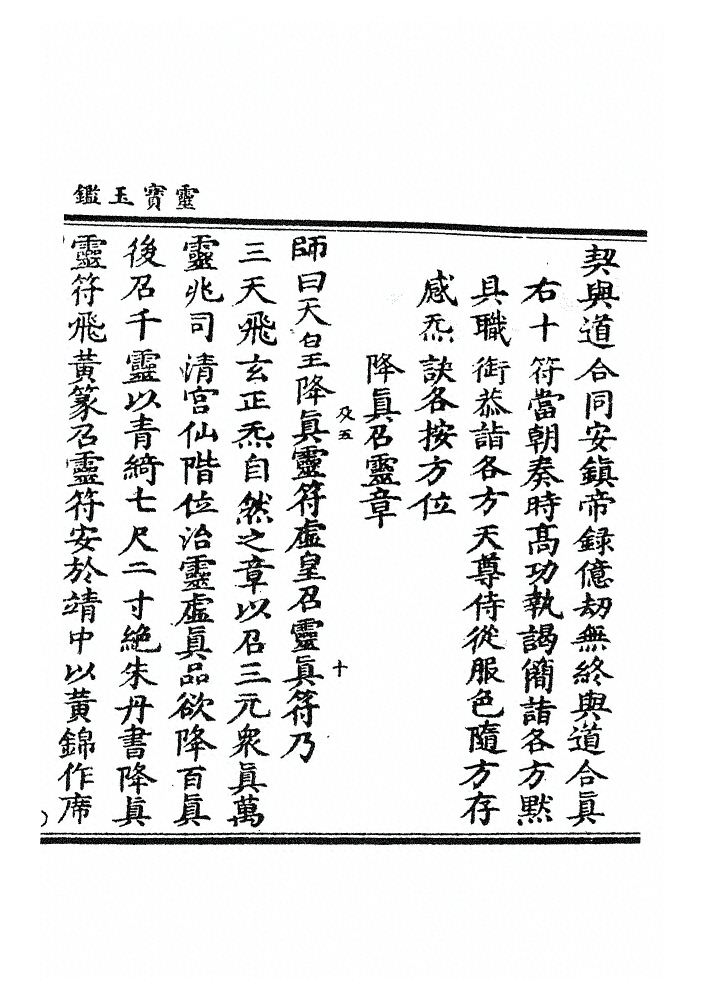 靈寶玉鑑
契與道合同安鎮帝録億劫無終與道合眞
右十符當朝奏時髙功執謁簡詣各方黙
具職銜恭詣各方天尊侍從服色隨方存
感炁訣各按方位
降眞召靈章
及五
十
師曰天皇降眞靈符虛皇召靈眞符乃
三天飛玄正炁自然之章以召三元衆眞萬
靈兆司清宮仙階位治靈虛眞品欲降百眞
後召千靈以青綺七尺二寸絶朱丹書降眞
靈符飛黃篆召靈符安於靖中以黃錦作席